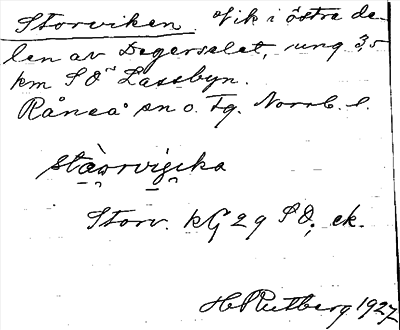 Storviken. Vik i östra de-
len av Degerselet, ung 3,5
km SO Lassbyn.
Råneå sn o. Tg. Norrb. l.
stæ̀ωrvig̯ika
Storv. kG 29 SO, ek.
H Rutberg 1927